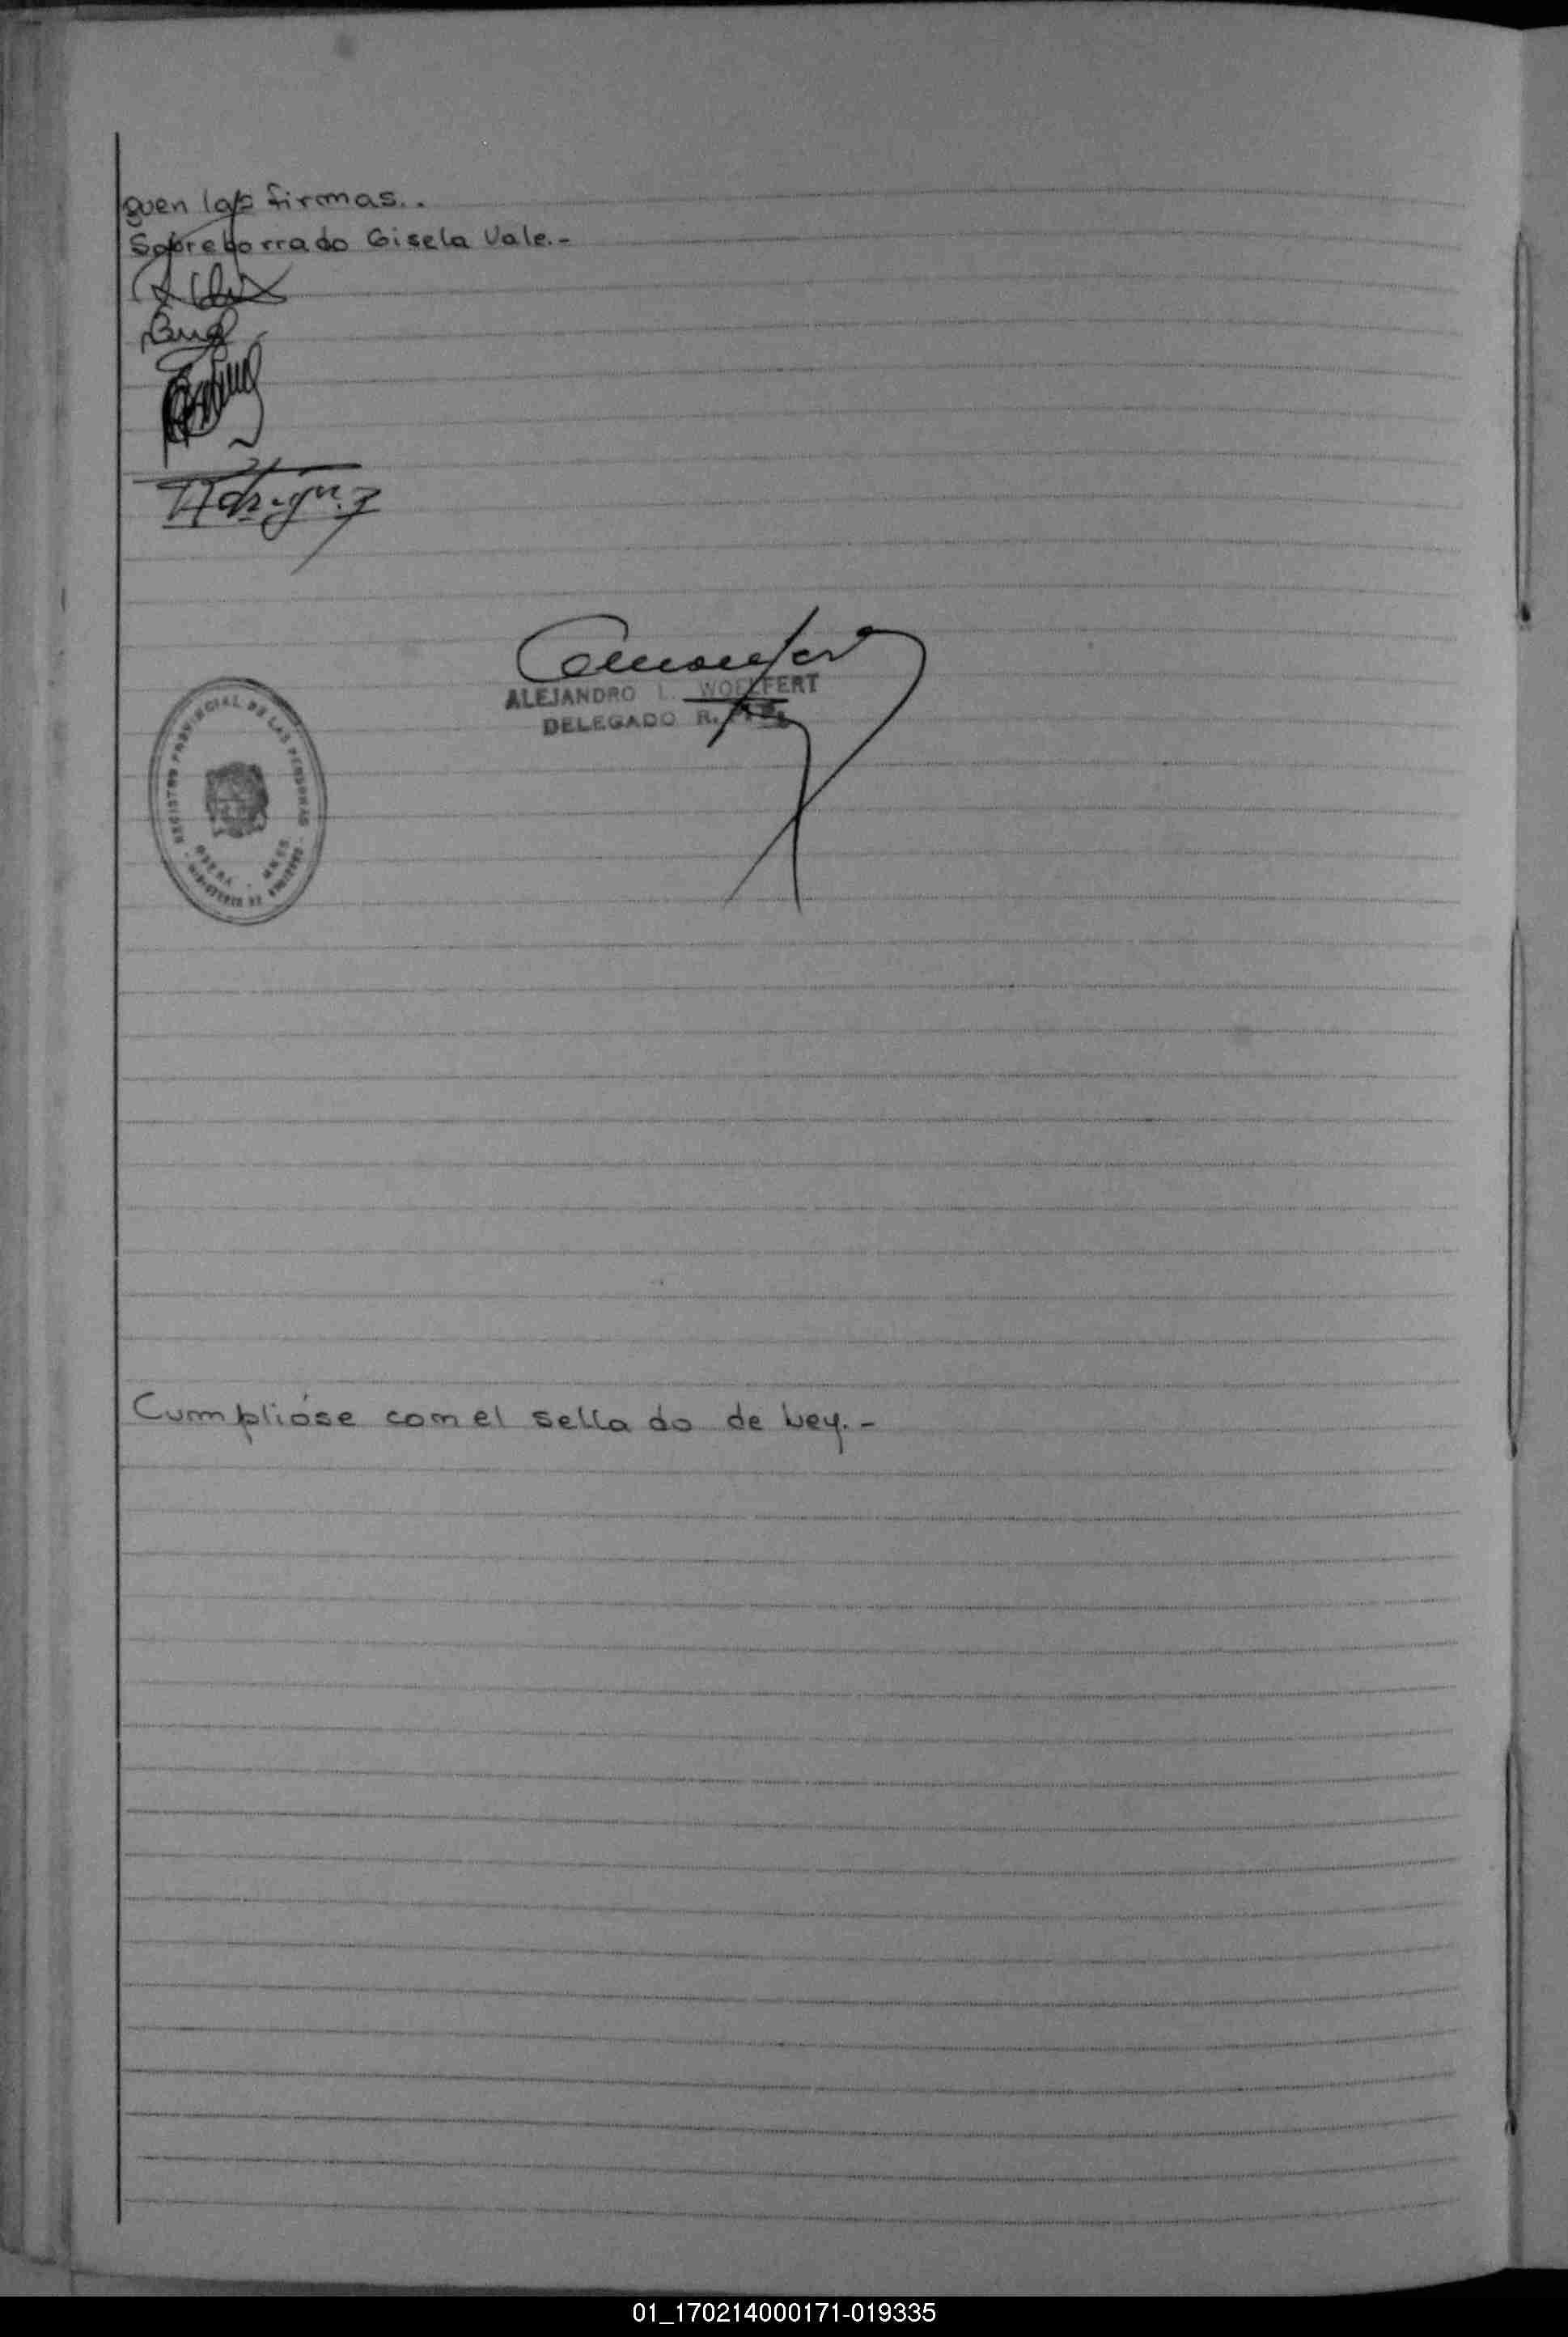 guen las firmas..
Sobreborrado Gisela Vale.-
ALEJANDRO L. WOELFERT
DELEGADO R.
REGISTRO PROVINCIAL DE LAS PERSONAS
MINISTERIO DE
Cumplióse con el sellado de Ley.-
01_170214000171-019335